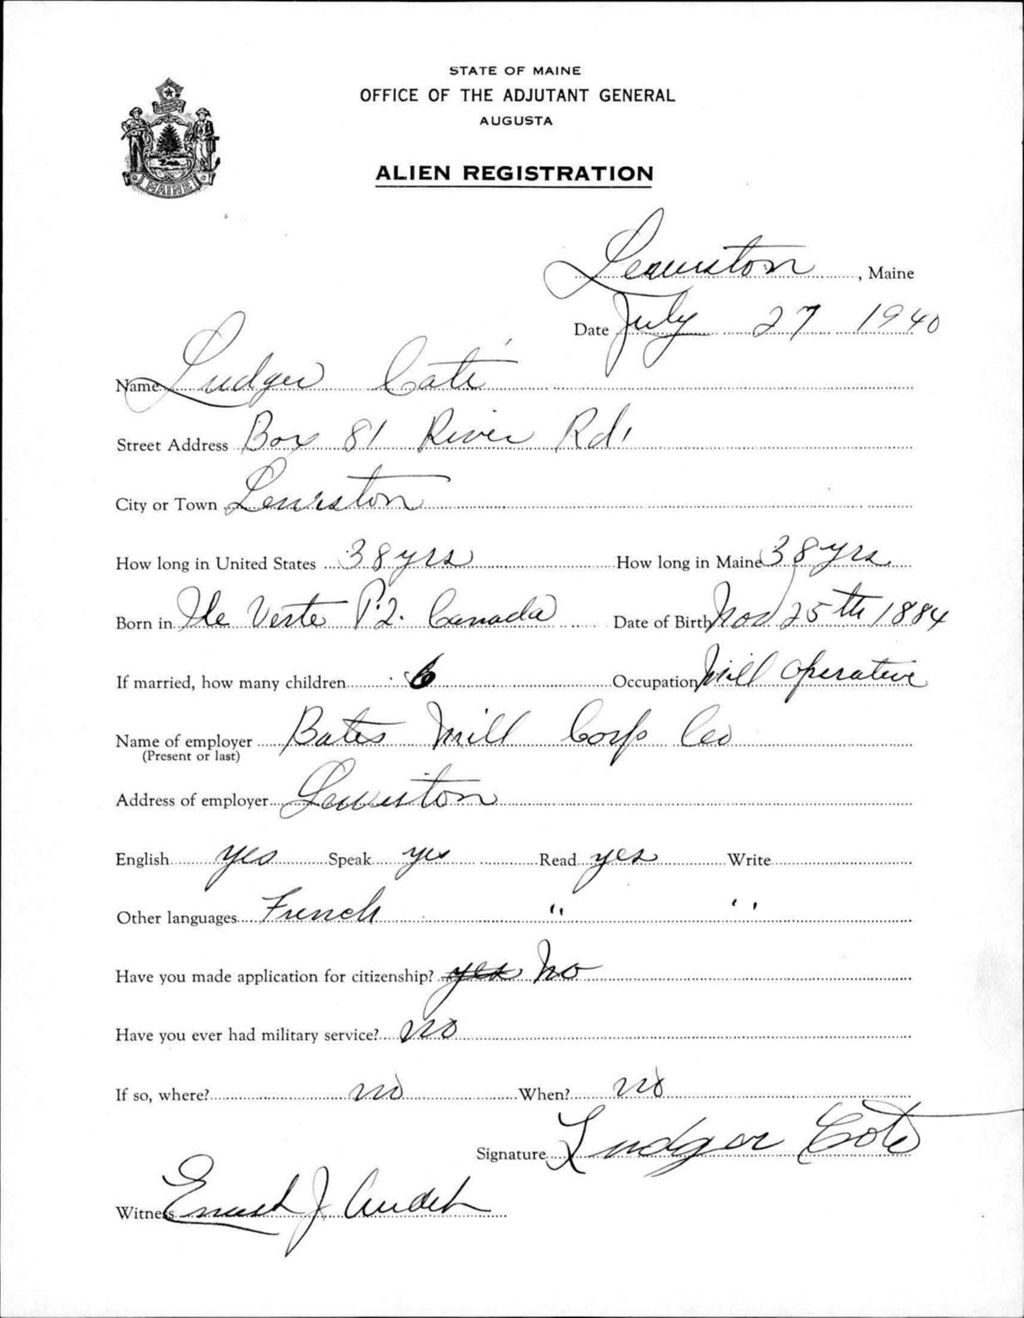 STATE OF MAINE
OFFICE OF THE ADJUTANT GENERAL
AUGUSTA
ALIEN REGISTRATION
MAINE
Lewiston, Maine
Date July 27 1940
Name Ludger Coté
Street Address Box 81 River Rd.
City or Town Lewiston
How long in United States 38 yrs How long in Maine 38 yrs
Born in Ile Verte P.Q. Canada Date of Birth Nov 25th 1884
If married, how many children 6 Occupation Mill Operative
Name of employer Bates Mill Corp Co
(Present or last)
Address of employer Lewiston
English yes Speak yes Read yes Write
Other languages French " "
Have you made application for citizenship? yes No
Have you ever had military service? no
If so, where? no When? no
Signature Ludger Cote
Witness J